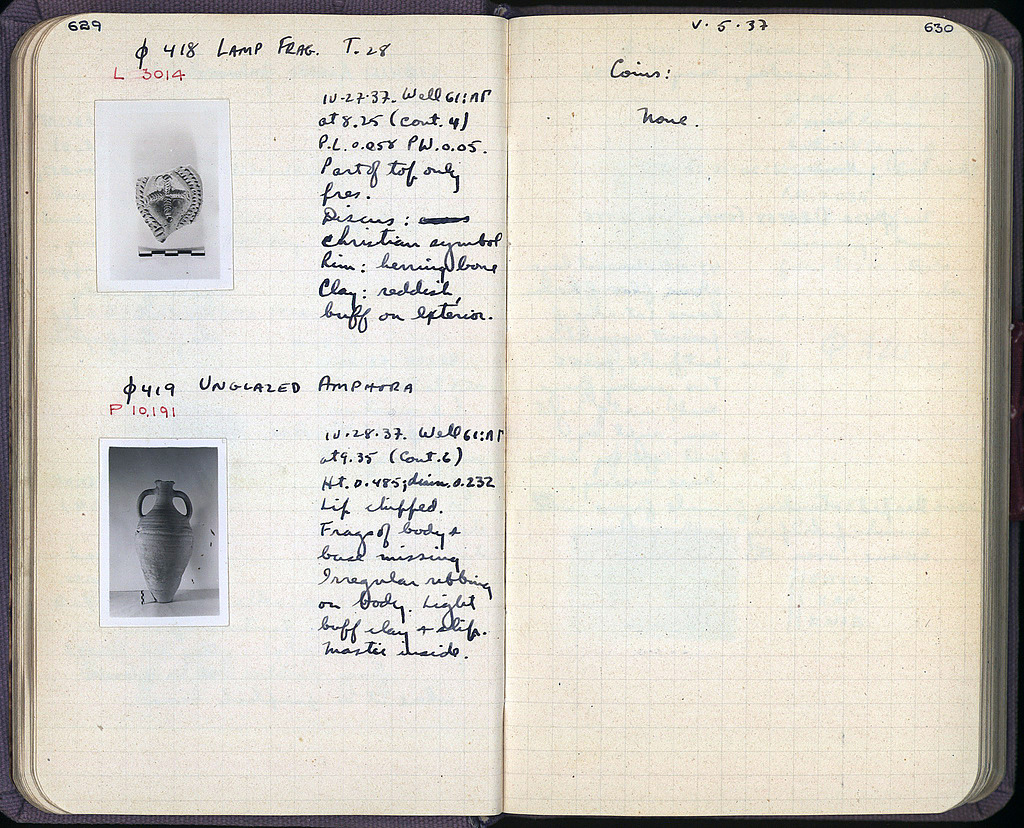 629
φ 418 LAMP FRAG. T. 28
L 3014
IV-27-37. Well 61:ΛΓ
at 8.25 (Cont. 4)
P.L. 0.058 P.W. 0.05.
Part of top only
pres.
Discus:
Christian symbol
Rim: herringbone
Clay: reddish,
buff on exterior.
φ 419 UNGLAZED AMPHORA
P 10,191
IV-28-37. Well 61:ΛΓ
at 9.35 (Cont. 6)
Ht. 0.485; diam. 0.232
Lip chipped.
Frags of body +
base missing
Irregular ribbing
on body. Light
buff clay + slip.
Mastic inside.
V-5-37
630
Coins:
None.